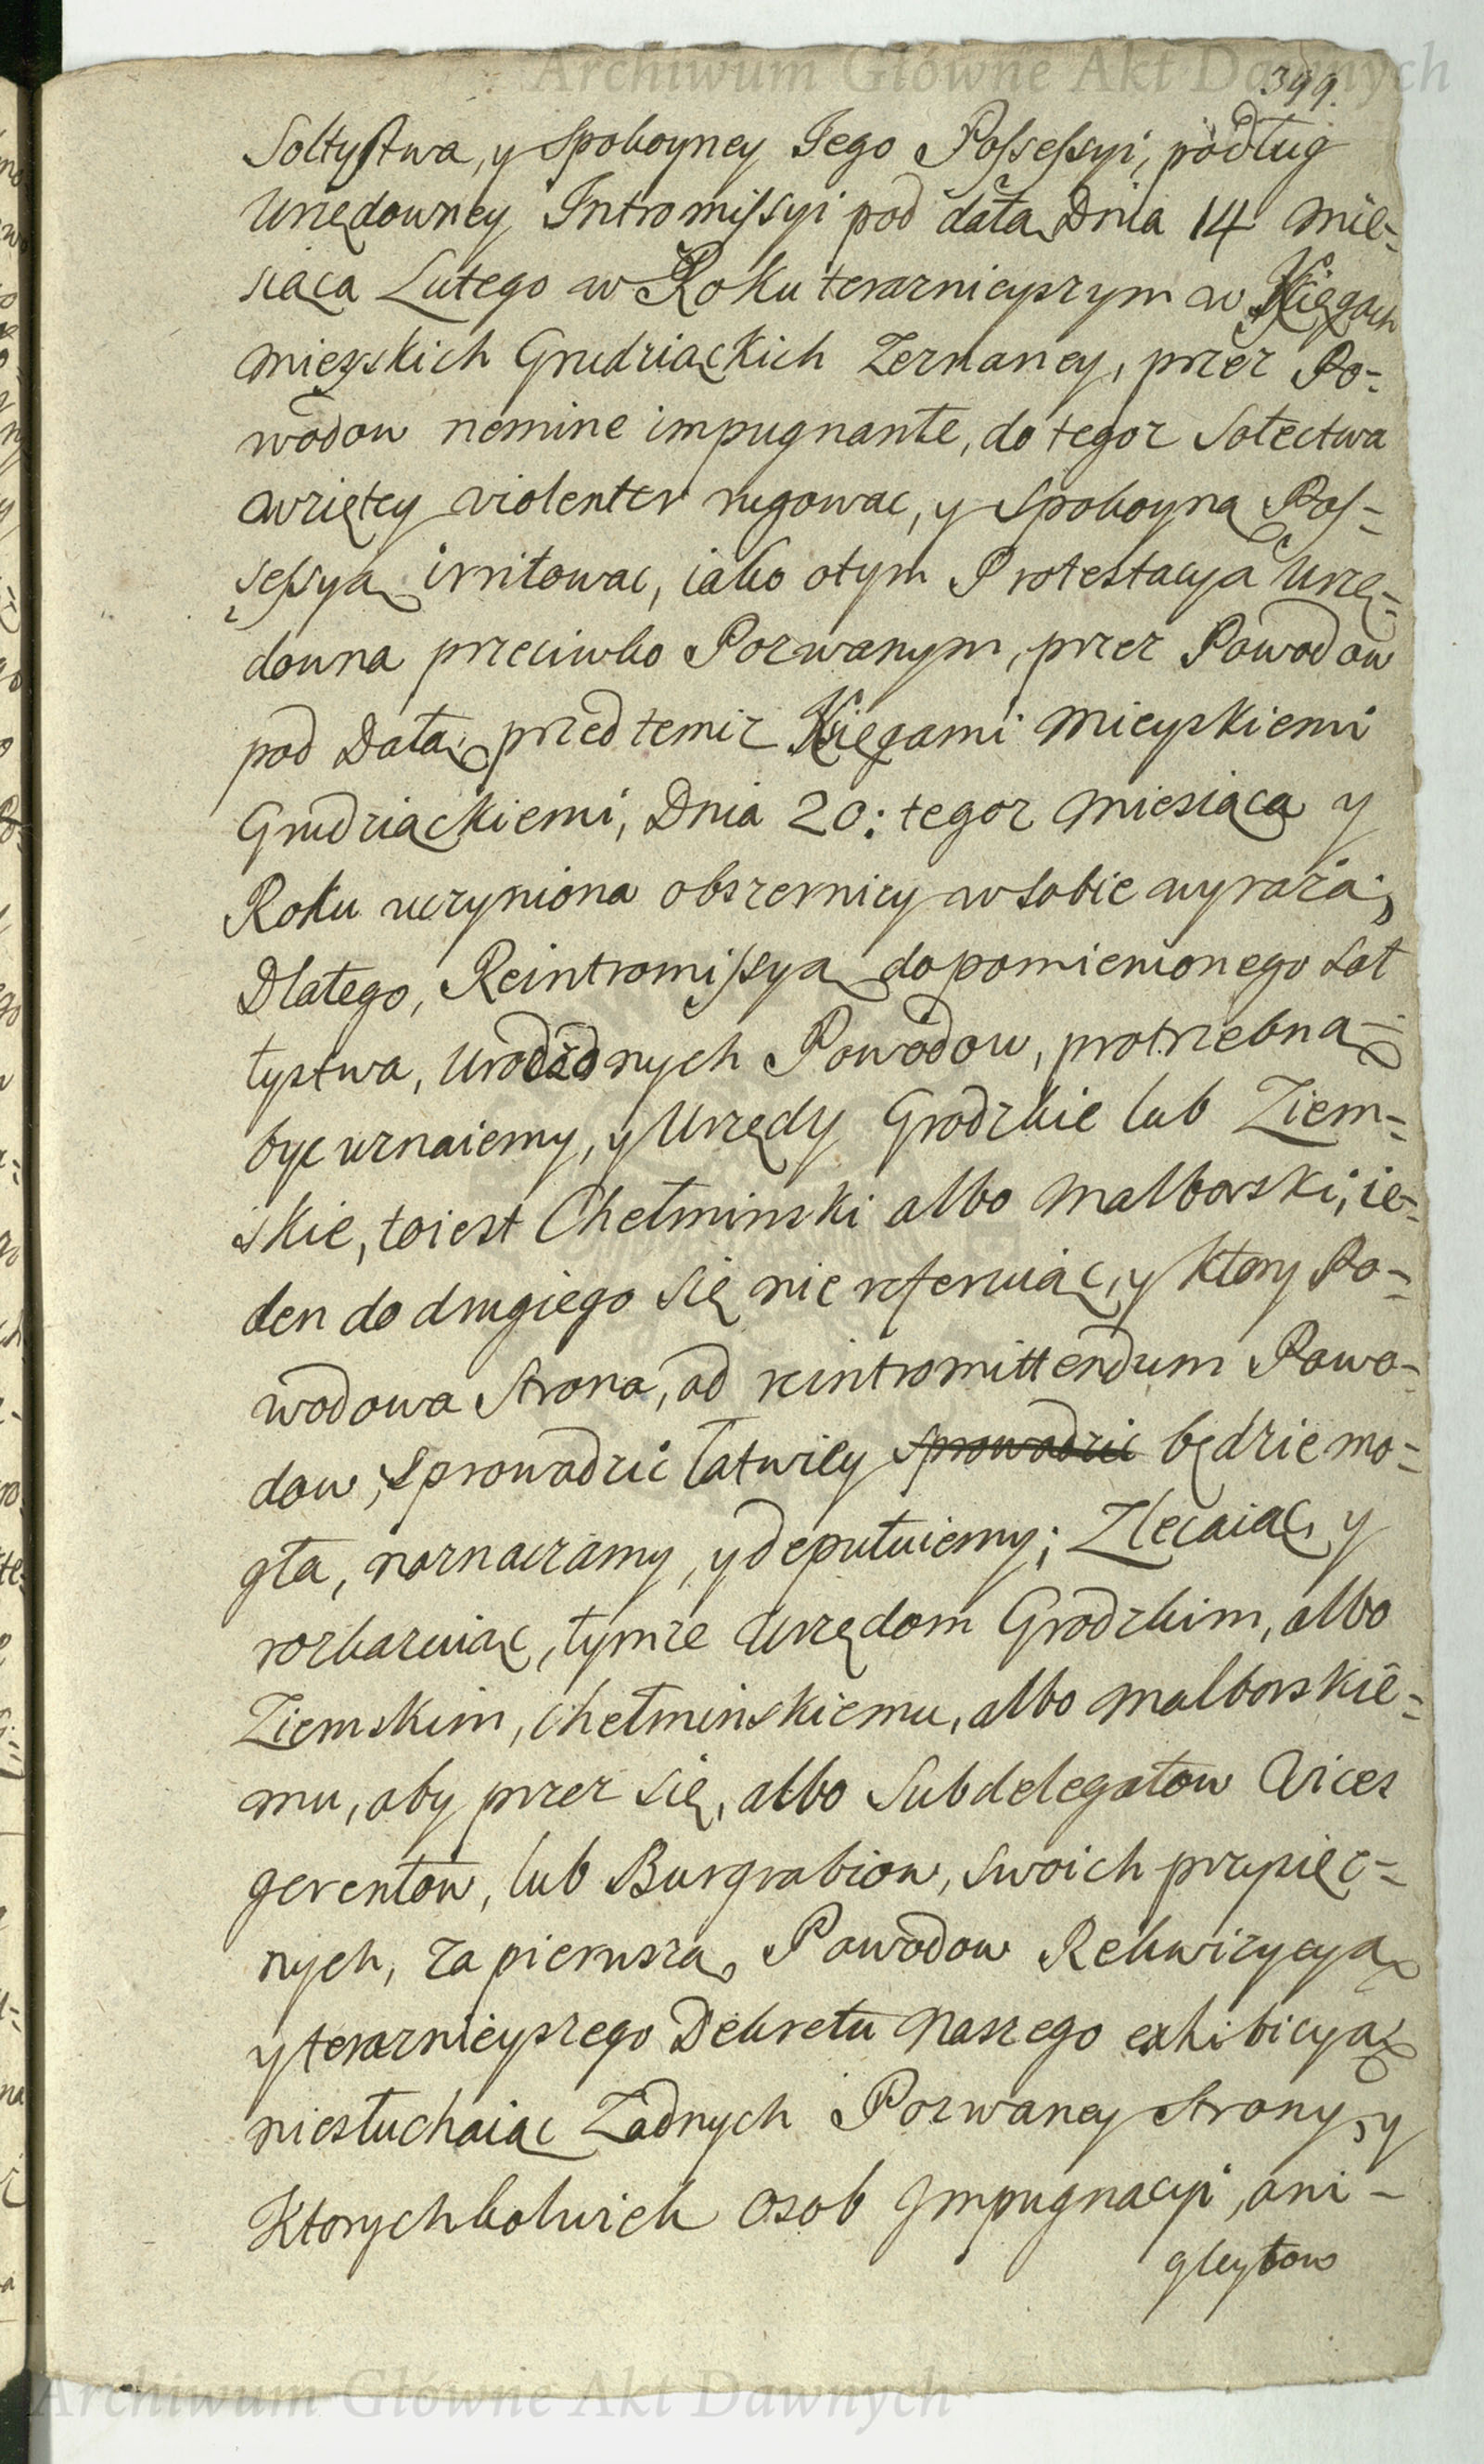 Archiwum Główne Akt Dawnych
399.
Sołtystwa, y spokoyney Jego Possessyi, podług
Urzędowney Intromissyi pod datą Dnia 14 Mie-
siąca Lutego w Roku teraznieyszym w Xięgach
Mieyskich Grudziąckich Zeznaney, przez Po-
wodow nemine impugnante, do tegoz Sołectwa
wziętey violenter rugowac, y spokoyną Pos-
sessyą irritowac, iako otym Protestacya Urzę-
downa przeciwko Pozwanym, przez Powodow
pod Datą przed temiz Xięgami Mieyskiemi
Grudziąckiemi, Dnia 20: tegoz Miesiąca y
Roku uczyniona obszerniey w sobie wyraża;
Dlatego, Reintromissyą do pomienionego Soł
tystwa, Urodzonych Powodow, potrzebną
byc uznaiemy, y Urzędy Grodzkie lub Ziem-
skie, toiest Chełminski albo Malborski, ie-
den do drugiego się nie referuiąc, y ktory Po-
wodowa Strona, ad reintromittendum Powo-
dow, sprowadzić łatwiey sprowadzić będzie mo-
gła, naznaczamy, y deputuiemy; Zlecaiąc, y
rozkazuiąc, tymze Urzędom Grodzkim, albo
Ziemskim, Chełminskiemu, albo Malborskie-
mu, aby przez się, albo Subdelegatow Vices
gerentow, lub Burgrabiow, swoich przysięg-
nych, za pierwszą Powodow Rekwizycyą
y teraznieyszego Dekretu Naszego exhibicyą
niesłuchaiąc Zadnych Pozwaney Strony, y
Ktorychkolwiek Osob Impugnacyi, ani -
gleytow
Archiwum Główne Akt Dawnych